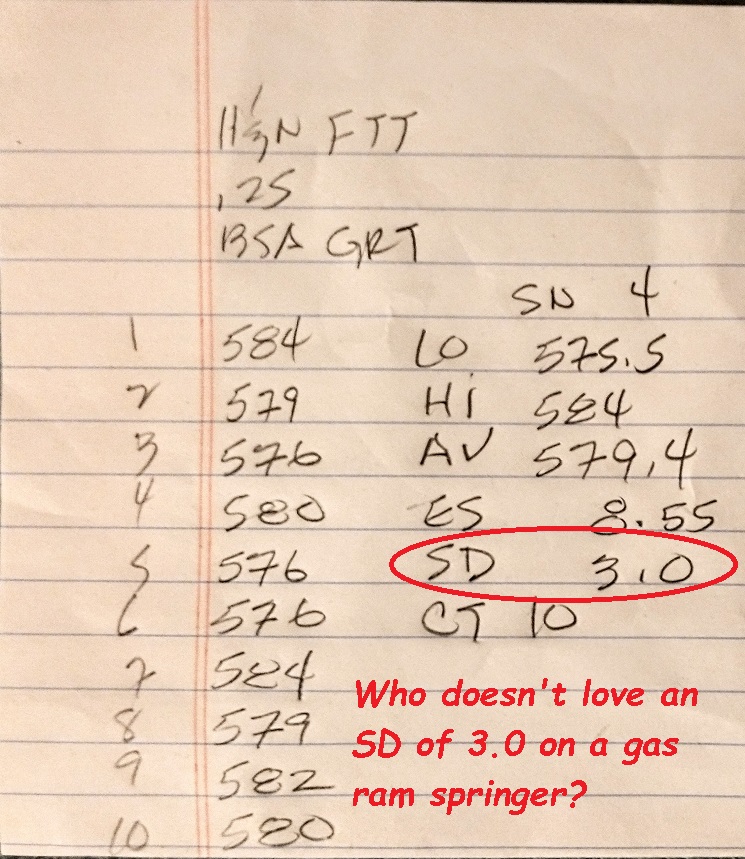 H&N FTT
.25
BSA GRT
SN 4
1 584 LO 575.5
2 579 Hi 584
3 576 AV 579.4
4 580 ES 8.55
5 576 SD 3.0
6 576 CT 10
7 584
8 579
9 582
10 580
Who doesn't love an
SD of 3.0 on a gas
ram springer?